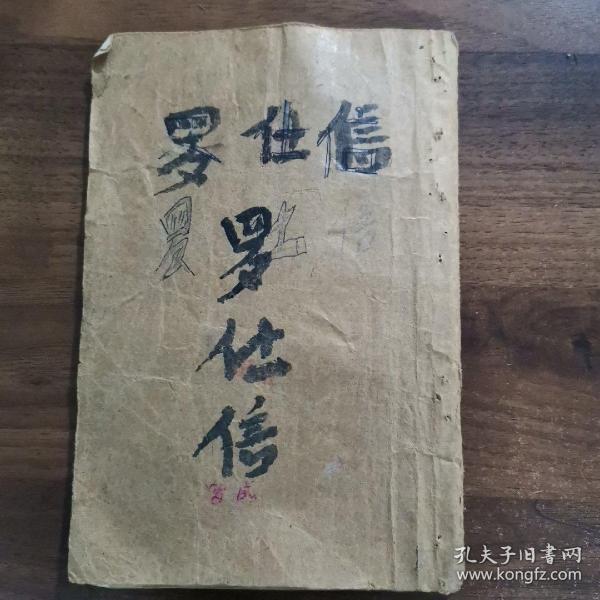 罗仕信
罗仕信
孔夫子旧书网
www.kongfz.com